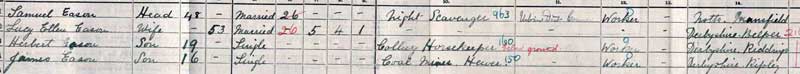 Samuel Eason Head 48 - Married 26 - - - Night Scavenger 963 Worker Notts. Mansfield
Lucy Ellen Eason Wife - 53 Married 26 5 4 1 - - - Derbyshire Belper
Herbert Eason Son 19 - Single - - - - Colliery Horsekeeper Worker Derbyshire Riddings
James Eason Son 16 - Single - - - - Coal Mine Worker Derbyshire Ripley